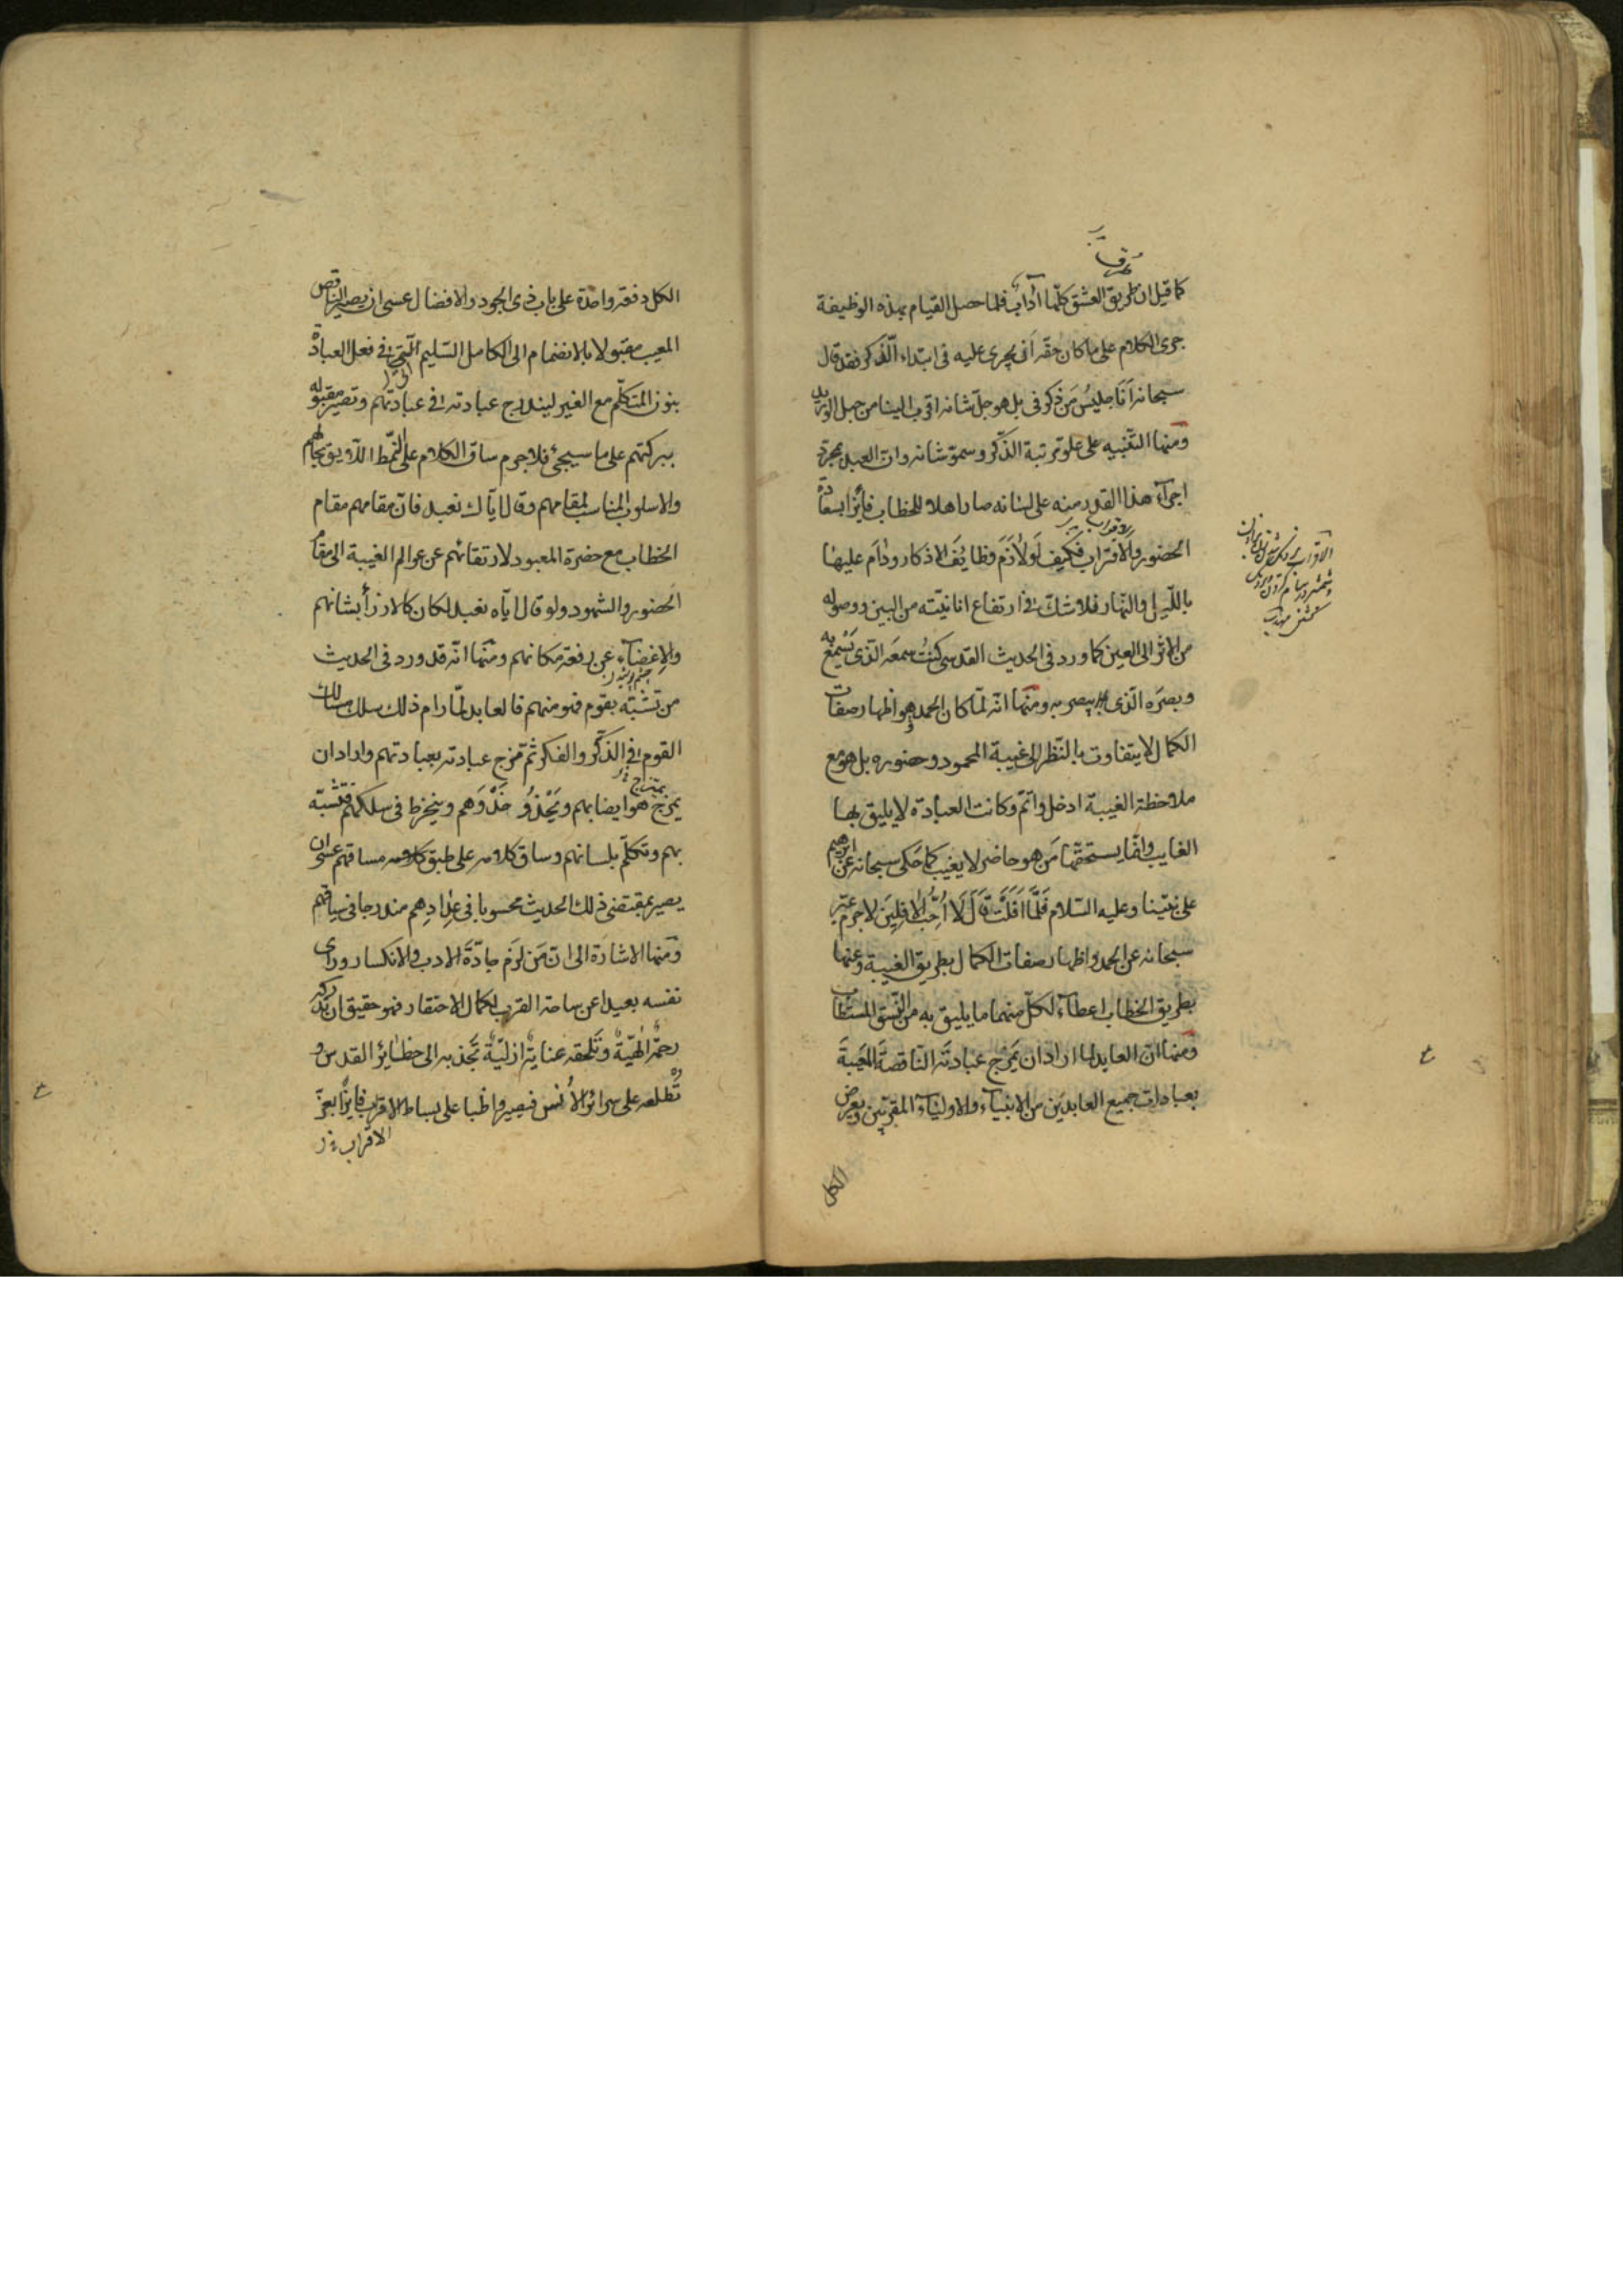 كما قيل ان طريق العشق كلّها آداب فلما حصل القيام بهذه الوظيفة
جرى الكلام على ما كان حقّه ان يجرى عليه فى ابتداء الذّكر فقد قال
سبحانه اَنَا جليسُ مَن ذكرنى بل هو جلّ شانه اقرب الينا من حبل الوريد
ومنها التّنبيه على علوّ مرتبة الذّكر وسموّ شانه وان العبد بمجرّد
اجراء هذا القدر منه على لسانه صار اهلا للخطاب فايزا بسعادة
الحضور والاقتراب فكيف لَو لازَمَ وظايُفَ الاذكار وداَم عليها
باللّيل والنّهار فلا شكّ فى ارتفاع انانيّته من البين ووصوله
من الاثر الى العين كما ورد فى الحديث القدسى كنتُ سمعَه الذى يَسْمَعُ به
وبصَره الّذى يبصر به ومنها انّه لمّا كان الحمد هو اظهار صفات
الكمال لا يتفاوت بالنّظر الى غيبة المحمود وحضوره بل هو مع
ملاحظة الغيبة ادخل واتمّ وكانت العبادة لا يليق بها
الغايب وانّما يستحقّها مَن هو حاضر لا يغيب كما حَكى سبحانه عن ابرهيم
على نبيّنا وعليه السّلام فَلَمَّا اَفَلَتْ قَالَ لَا اُحِبُّ الافِلِينَ لا جرم عبّر
سبحانه عن الحمد واظهار صفات الكمال بطريق الغيبة وعنها
بطريق الخطاب اعطاء لكلّ منهما ما يليق به من النّسق المستطاب
ومنها انّ العابد لما اراد ان يَمزج عبادتَه النّاقصةَ المعيبةَ
بعبادات جميع العابدين من الانبياء والاولياء المقرّبين ويعرض
الكل
الكل دفعة واحدة على باب ذى الجود والافضال عسى ان يصير النّاقص
المعيب مقبولا بالانضمام الى الكامل السّليم اتى فى فعل العبادة
بنون المتكلّم مع الغير ليندرج عبادته فى عبادتهم وتصير مقبوله
ببركتهم على ما سيجئ فلا جرم ساق الكلام على النّمط اللّايق بحالهم
والاسلوب المناسب لمقامهم وقال ايّاك نعبد فانّ مقامهم مقام
الخطاب مع حضرة المعبود لارتقائهم عن عوالم الغيبة الى مقام
الحضور والشهود ولو قال ايّاه نعبد لكان كالازرأ بشانهم
والاِغضاء عن رفعة مكانهم ومنها انّه قد ورد فى الحديث
من تشبّه بقوم فهو منهم فالعابد لمّا رام ذلك سلك مسالك
القوم فى الذّكر والفكر ثمّ مزج عبادته بعبادتهم واراد ان
يمزج هو ايضا بهم ويَحْذُو حَذْوَهم وينخرط فى سلكهم فتشبّه
بهم وتكلّم بلسانهم وساق كلامه على طبق كلامه مساقهم عسى ان
يصير بمقتضى ذلك الحديث محسوبا فى عِدادِهم مندرجا فى سياقهم
ومنها الاشارة الى انّ مَن لزَم جادّةَ الادب والانكسار وراى
نفسه بعيدا عن ساحة القرب لكمال الاحتقار فهو حقيق ان تدركه
رحمةٌ الٰهيّةٌ وتَلحقه عنايةٌ ازليّةٌ تَجذبه الى حظاير القدس و
تُطلعه على سرائر الاُنس فيصير واطيا على بساط الاقتراب فايزا بعزّ